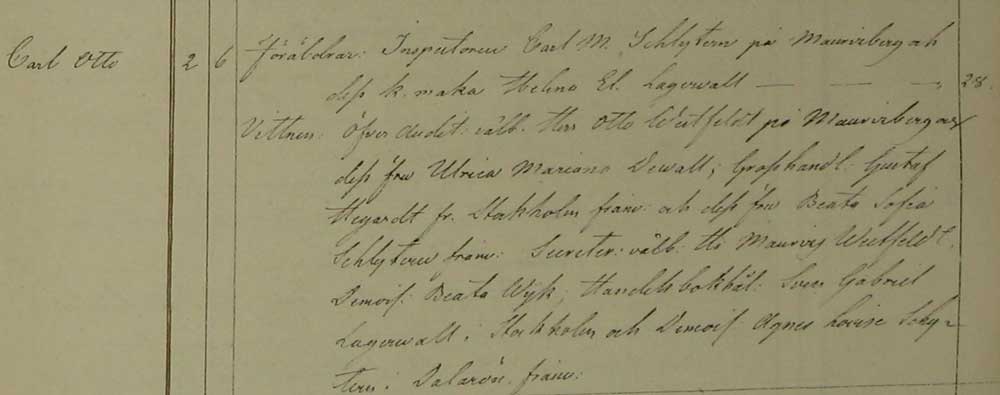 Carl Otto 2 6 Föräldrar: Inspectoren Carl M. Schlytern på Mauritzberg och
deß k. maka Helena El. Lagerwall — — — „ 28.
Vittnen: Öfver Audit: välb. Herr Otto Westfeldt på Mauritzberg och
deß fru Ulrica Mariana Dewall; Großhandl: Gustaf
Hegardt fr. Stockholm frånv: och deß fru Beata Sofia
Schlytern frånv: Secreter: välb: Hr Mauritz Westfeldt,
Demois: Beata Wijk; Handels bokhål: Sven Gabriel
Lagerwall i Stockholm och Demois: Agnes Lovise Schly-
tern i Dalarön frånv: